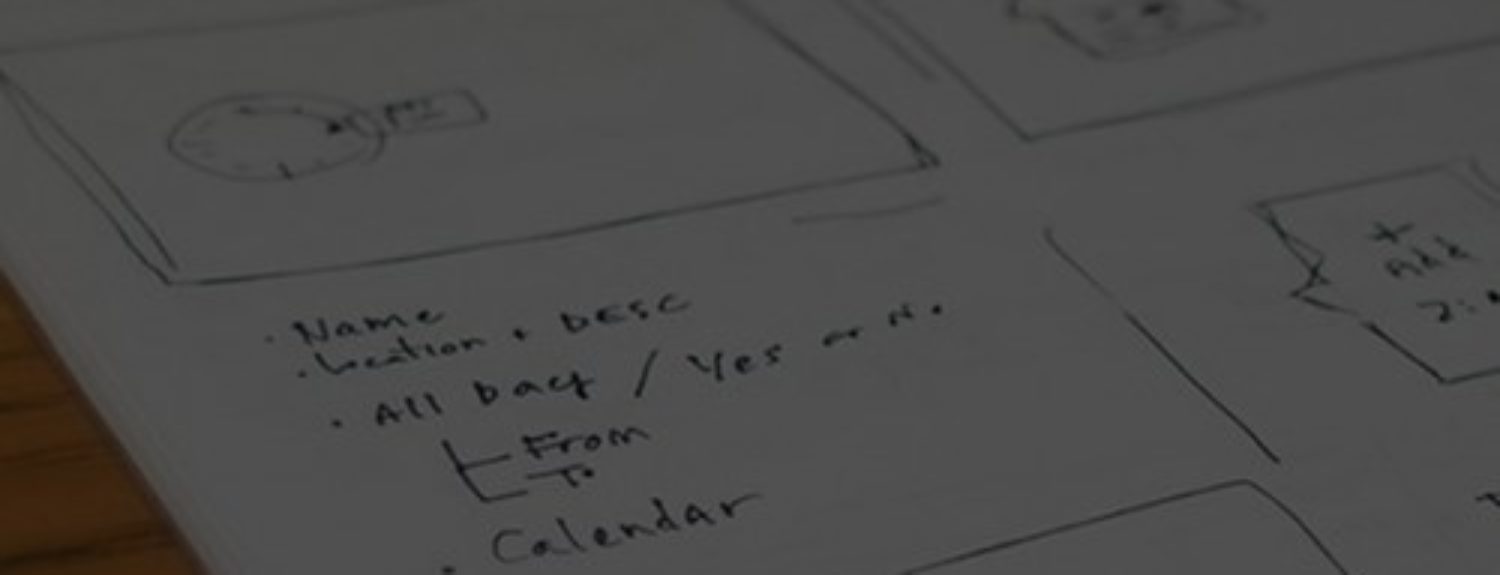 · Name
· Location + DESC
· All Day / Yes or No
From
To
· Calendar
+
Add